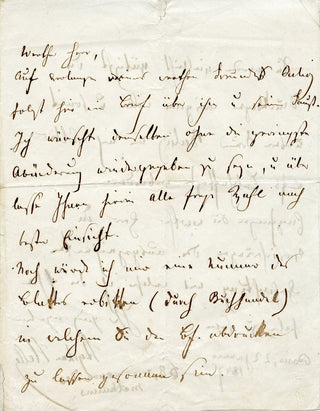 Werther Herr,
Auf Verlangen meines werthen Freundes
folgt hier ein Brief über ihn u seine Kunst.
Ich wünschte denselben ohne die geringste
Abänderung wiedergegeben zu sehn, u über
lasse Ihnen hierin alle freye Wahl nach
bester Einsicht.
Noch würde ich mir eine Nummer des
Blattes erbitten (durch Buchhandel)
in welchem Sie den Bf. abdrucken
zu lassen gesonnen sind.